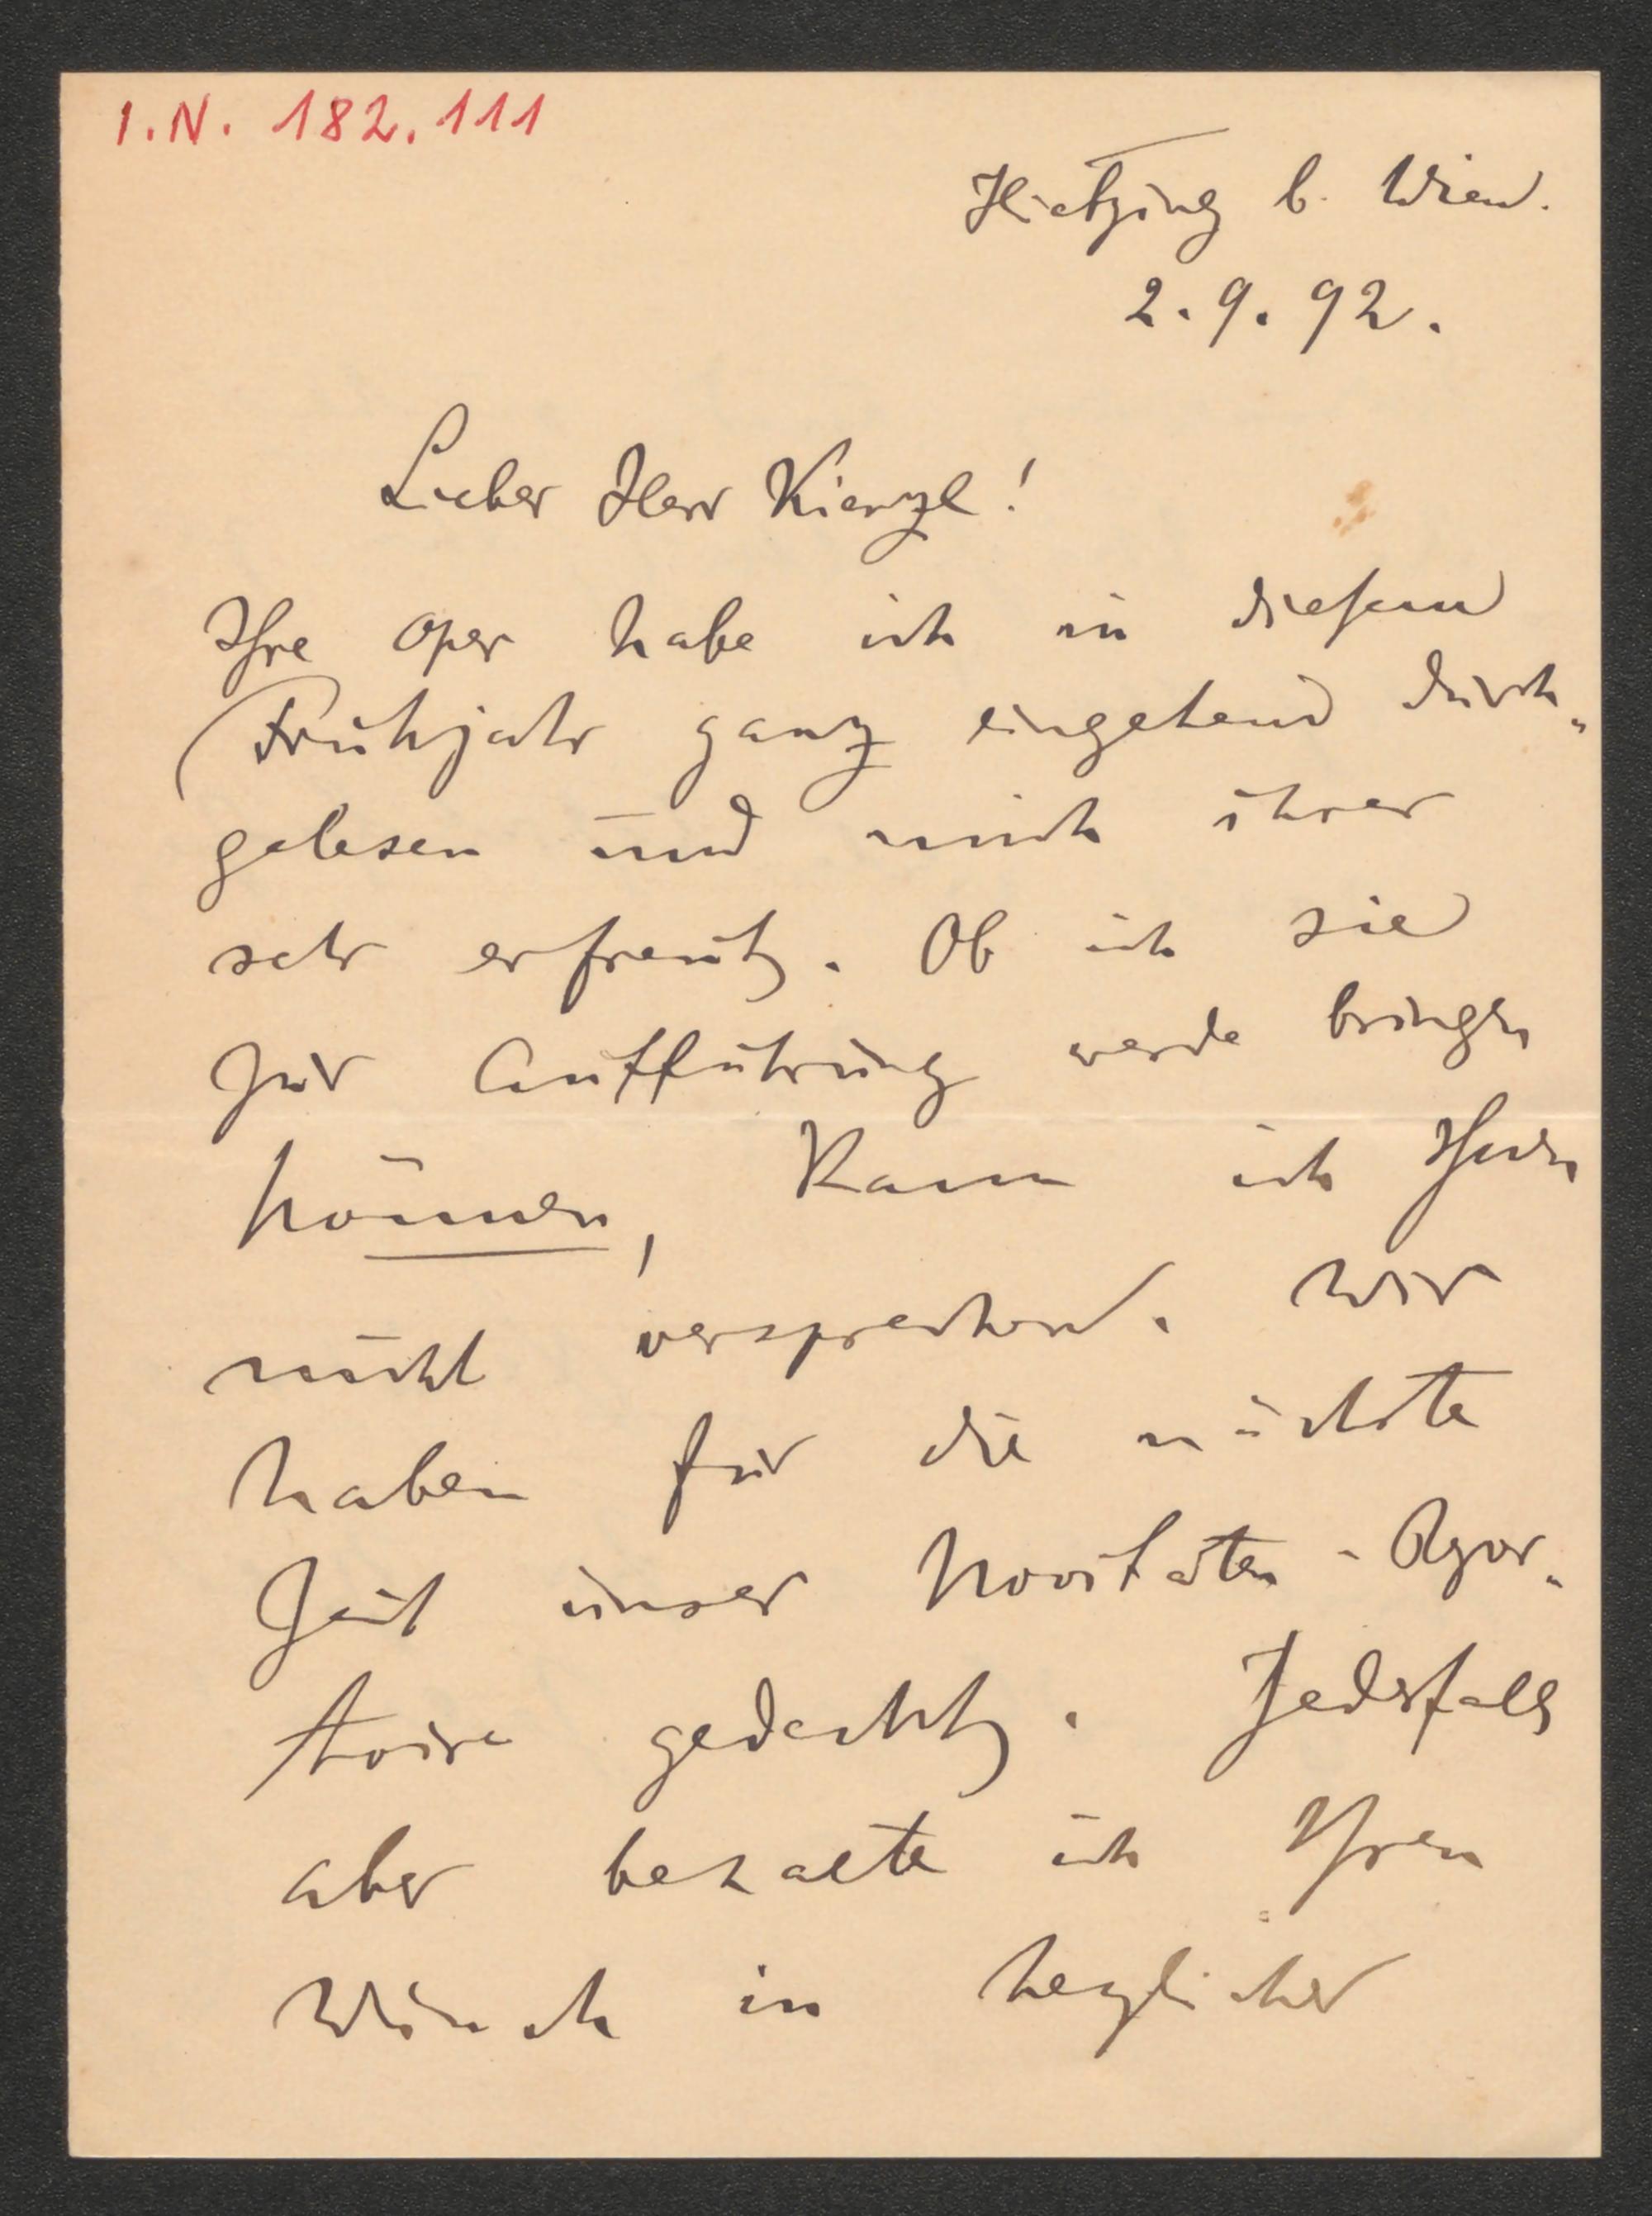 I.N. 182.111
Hietzing b. Wien.
2.9.92.
Lieber Herr Kienzl!
Ihre Oper habe ich in diesem
Frühjahr ganz eingehend durch-
gelesen und mich ihrer
sehr erfreut. Ob ich sie
zur Aufführung werde bringen
können, kann ich Ihnen
nicht versprechen. Wir
haben für die nächste
Zeit unser Novitäten-Reper-
toire gedeckt. Jedesfalls
aber behalte ich Ihren
Wunsch in herzlicher